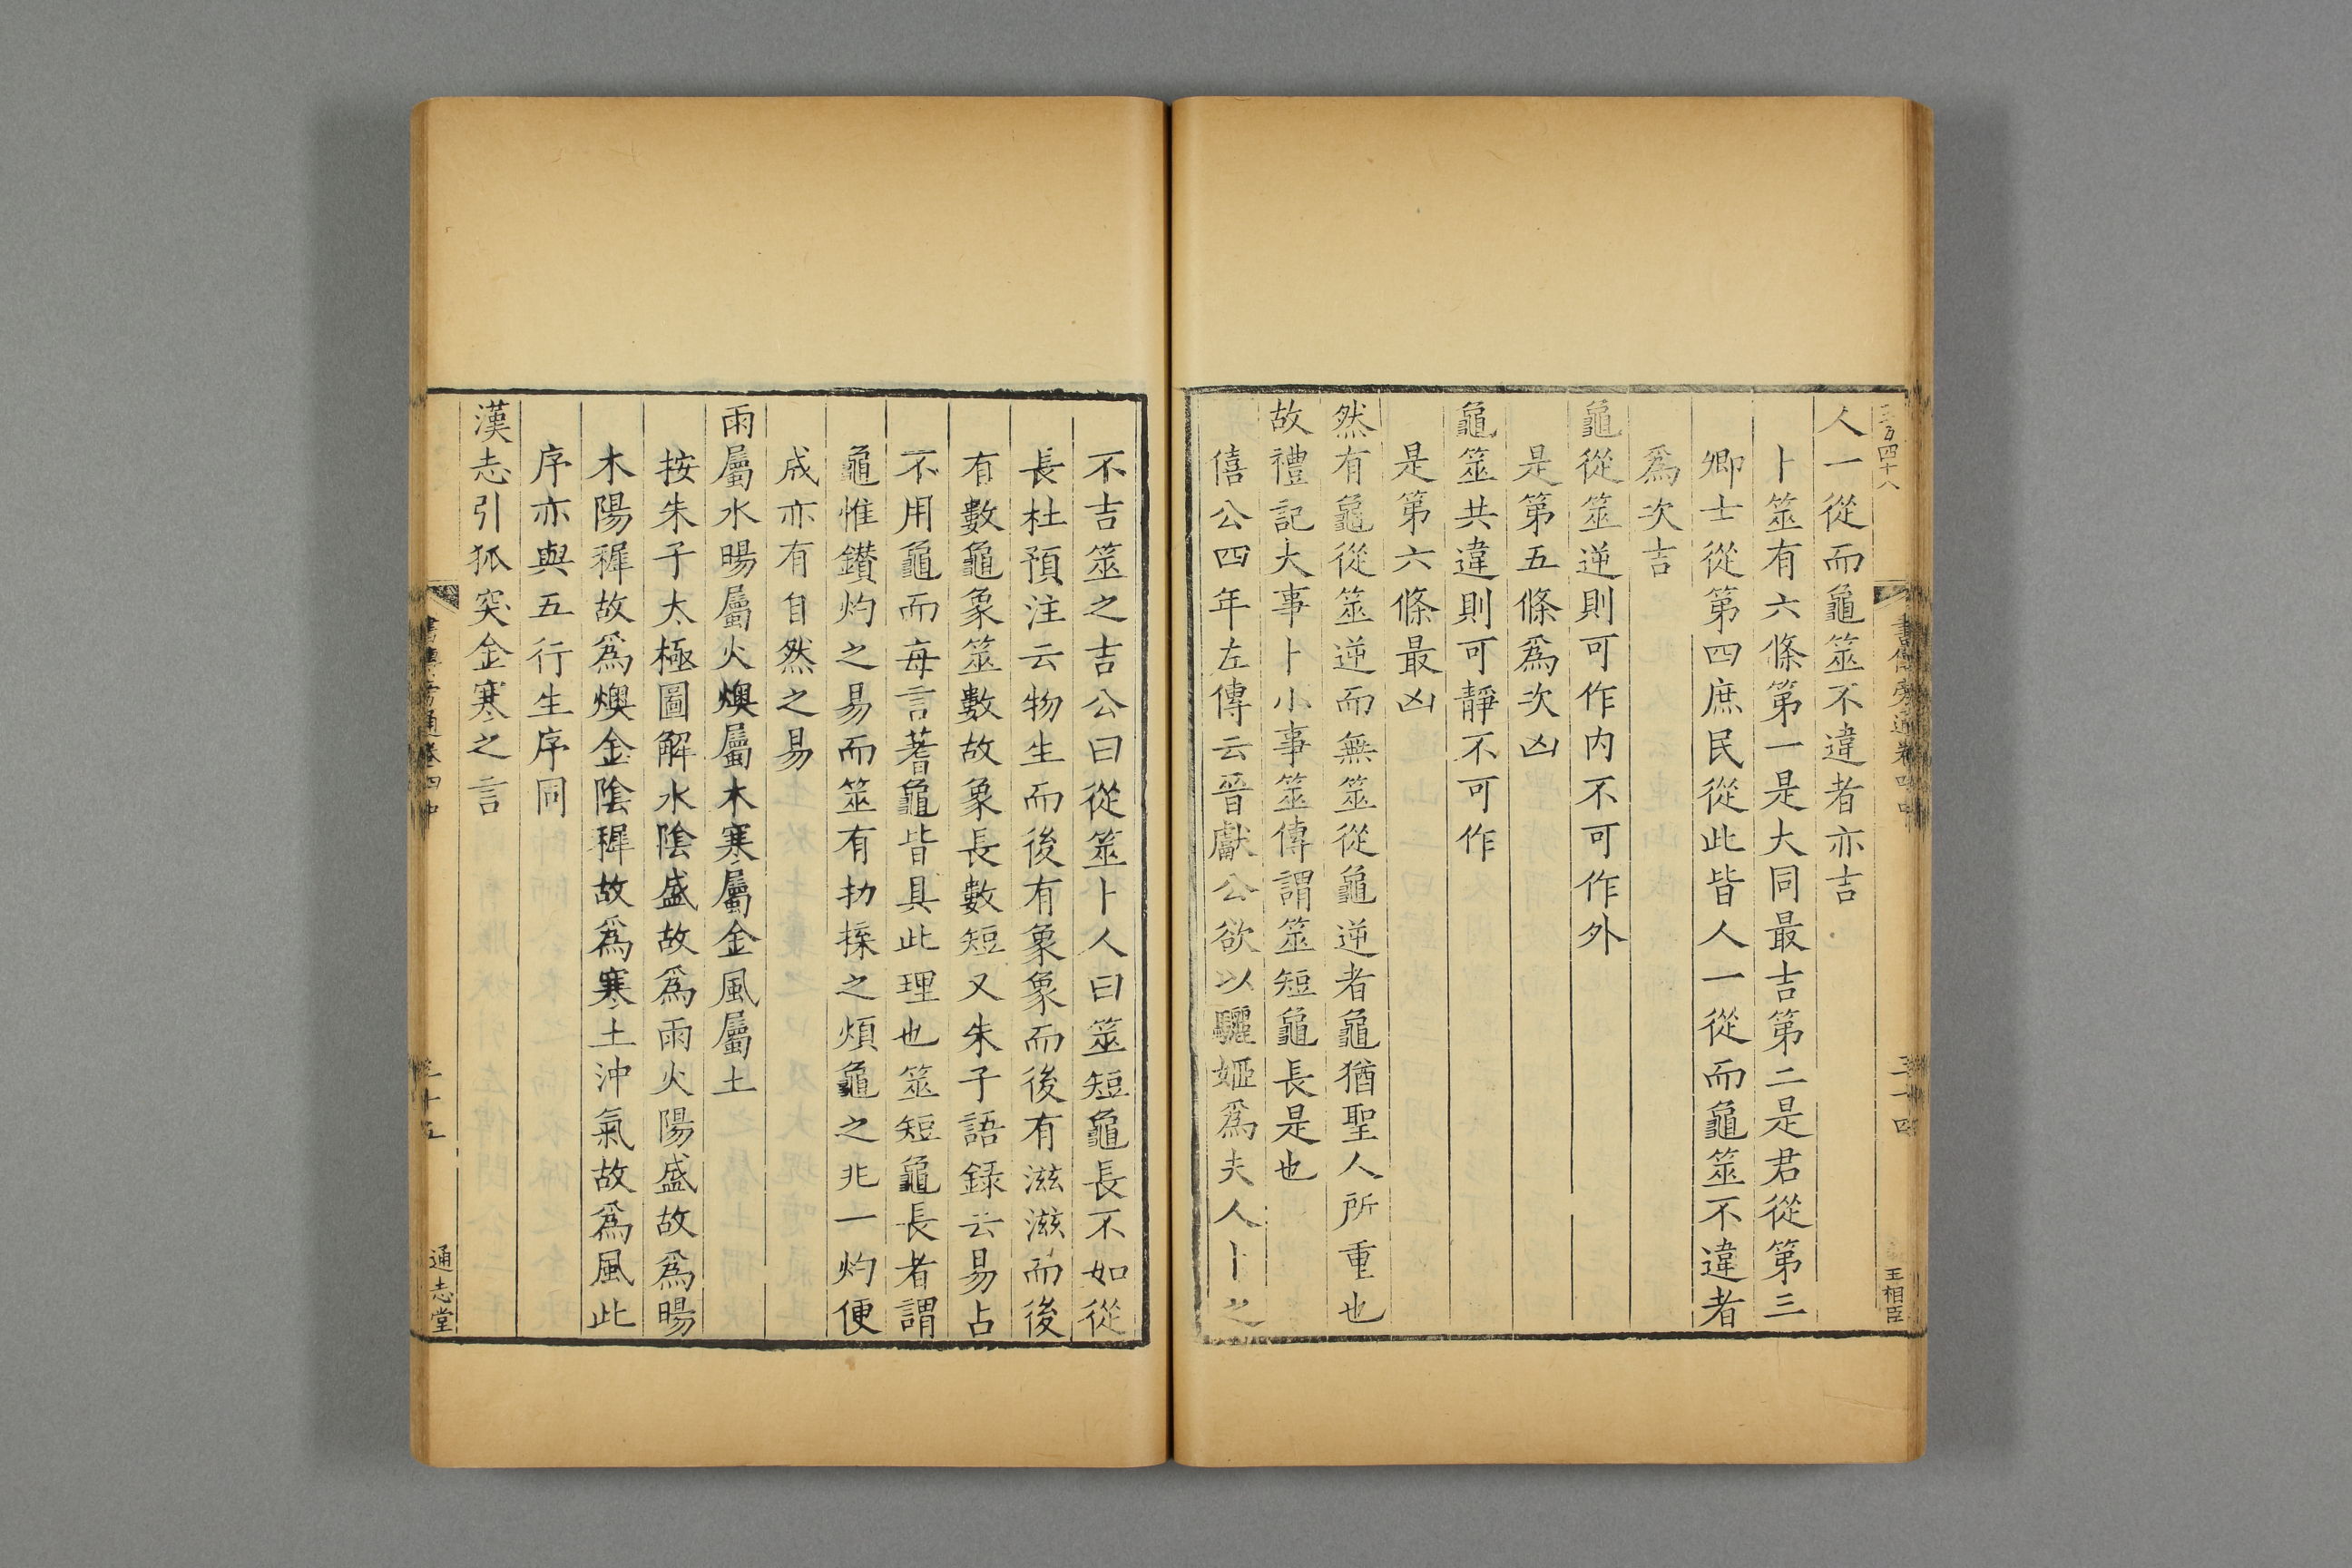 人一從而龜筮不違者亦吉
卜筮有六條第一是大同最吉第二是君從第三
卿士從第四庶民從此皆人一從而龜筮不違者
爲次吉
龜從筮逆則可作内不可作外
是第五條爲次凶
龜筮共違則可靜不可作
是第六條最凶
然有龜從筮逆而無筮從龜逆者龜猶聖人所重也
故禮記大事卜小事筮傳謂筮短龜長是也
僖公四年左傳云晉獻公欲以驪姬爲夫人卜之
王相臣
不吉筮之吉公曰從筮卜人曰筮短龜長不如從
長杜預注云物生而後有象象而後有滋滋而後
有數龜象筮數故象長數短又朱子語録云易占
不用龜而毎言蓍龜皆具此理也筮短龜長者謂
龜惟鑽灼之易而筮有扐揲之煩龜之兆一灼便
成亦有自然之易
雨屬水暘屬火燠屬木寒屬金風屬土
按朱子太極圖解水陰盛故爲雨火陽盛故爲暘
木陽穉故爲燠金陰穉故爲寒土沖氣故爲風此
序亦與五行生序同
漢志引狐突金寒之言
通志堂